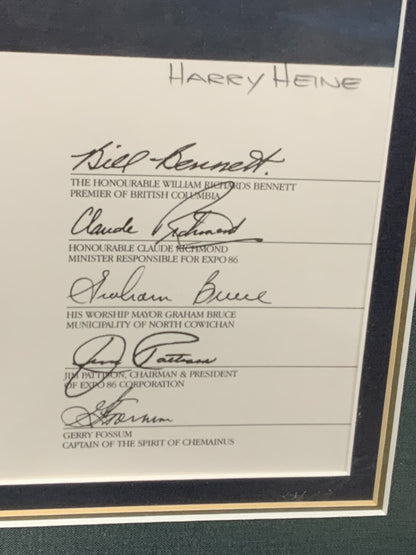 HARRY HEINE
Bill Bennett.
THE HONOURABLE WILLIAM RICHARDS BENNETT
PREMIER OF BRITISH COLUMBIA
Claude Richmond
HONOURABLE CLAUDE RICHMOND
MINISTER RESPONSIBLE FOR EXPO 86
Graham Bruce
HIS WORSHIP MAYOR GRAHAM BRUCE
MUNICIPALITY OF NORTH COWICHAN
Jim Pattison
JIM PATTISON, CHAIRMAN & PRESIDENT
OF EXPO 86 CORPORATION
G Fossum
GERRY FOSSUM
CAPTAIN OF THE SPIRIT OF CHEMAINUS